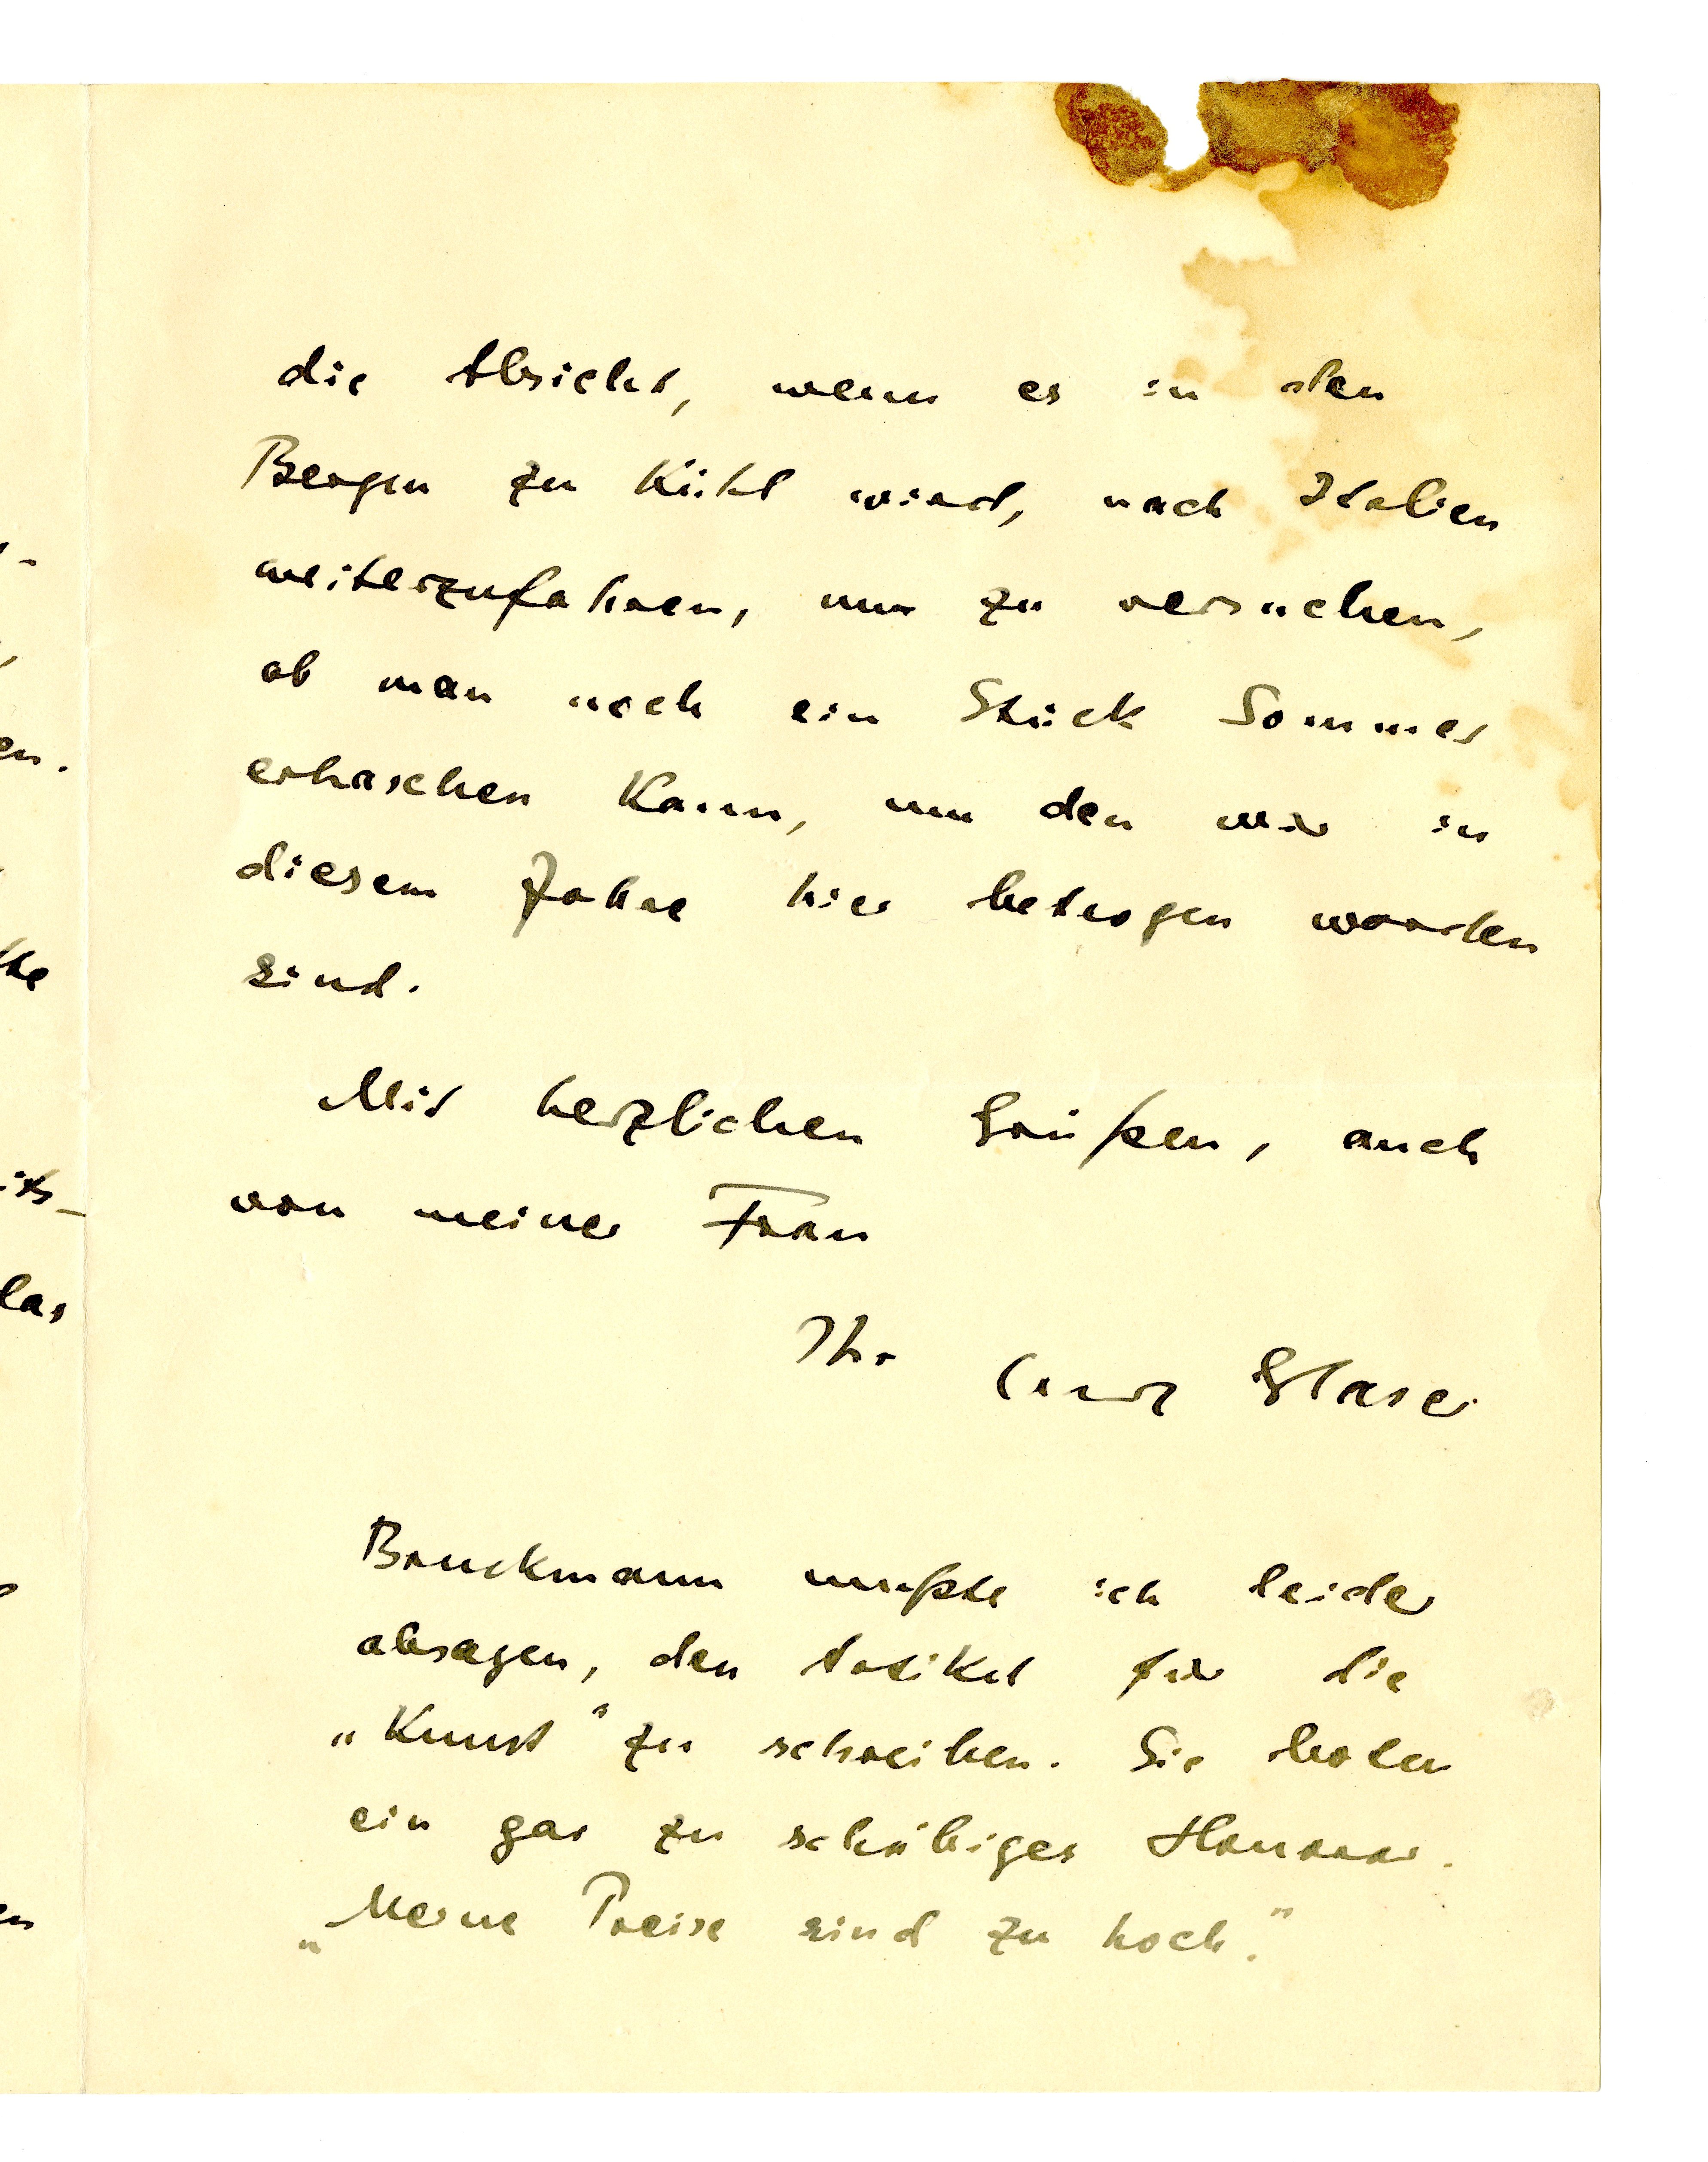 die Absicht, wenn es in den
Bergen zu kühl wird, nach Italien
weiterzufahren, um zu versuchen,
ob man noch ein Stück Sommer
erhaschen kann, um den wir in
diesem Jahre hier betrogen worden
sind.
Mit herzlichen Grüßen, auch
von meiner Frau
Ihr Curt Glaser
Bruckmann mußte ich leider
absagen, den Artikel für die
„Kunst" zu schreiben. Sie boten
ein gar zu schäbiges Honorar.
„Meine Preise sind zu hoch."